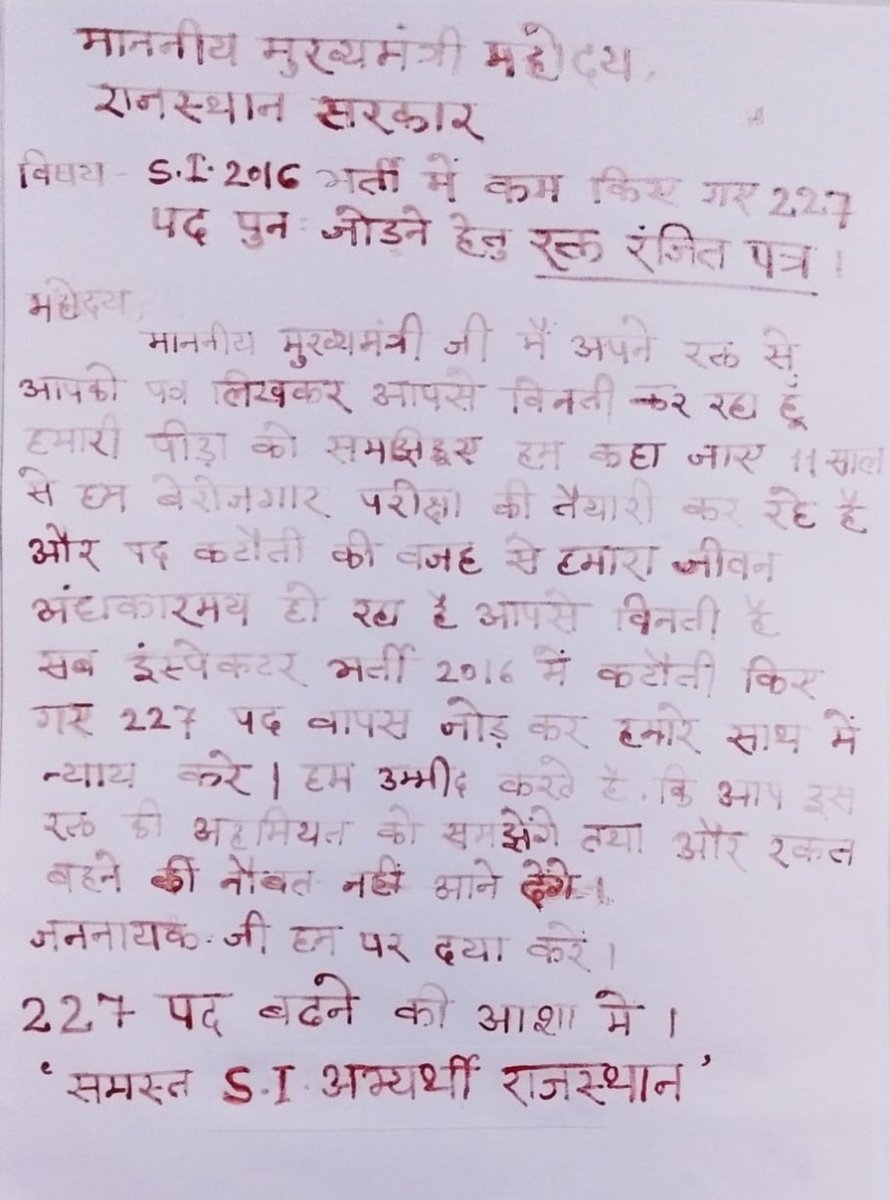 माननीय मुख्यमंत्री महोदय,
राजस्थान सरकार
विषय - S.I. 2016 भर्ती में कम किए गए 227
पद पुन: जोडने हेतु रक्त रंजित पत्र ।
महोदय,
माननीय मुख्यमंत्री जी मैं अपने रक्त से
आपको पत्र लिखकर आपसे विनती कर रहा हूँ
हमारी पीड़ा को समझिए हम कहा जाए 11 साल
से हम बेरोजगार परीक्षा की तैयारी कर रहे है
और पद कटौती की वजह से हमारा जीवन
अंधकारमय हो रहा है आपसे विनती है
सब इंस्पेकटर भर्ती 2016 में कटौती किए
गए 227 पद वापस जोड़ कर हमारे साथ में
न्याय करे । हम उम्मीद करते है. कि आप इस
रक्त की अहमियत को समझेंगे तथा और रकत
बहने की नौबत नहीं आने देंगे ।
जननायक जी हम पर दया करें ।
227 पद बढने की आशा मे ।
'समस्त S.I. अभ्यर्थी राजस्थान'